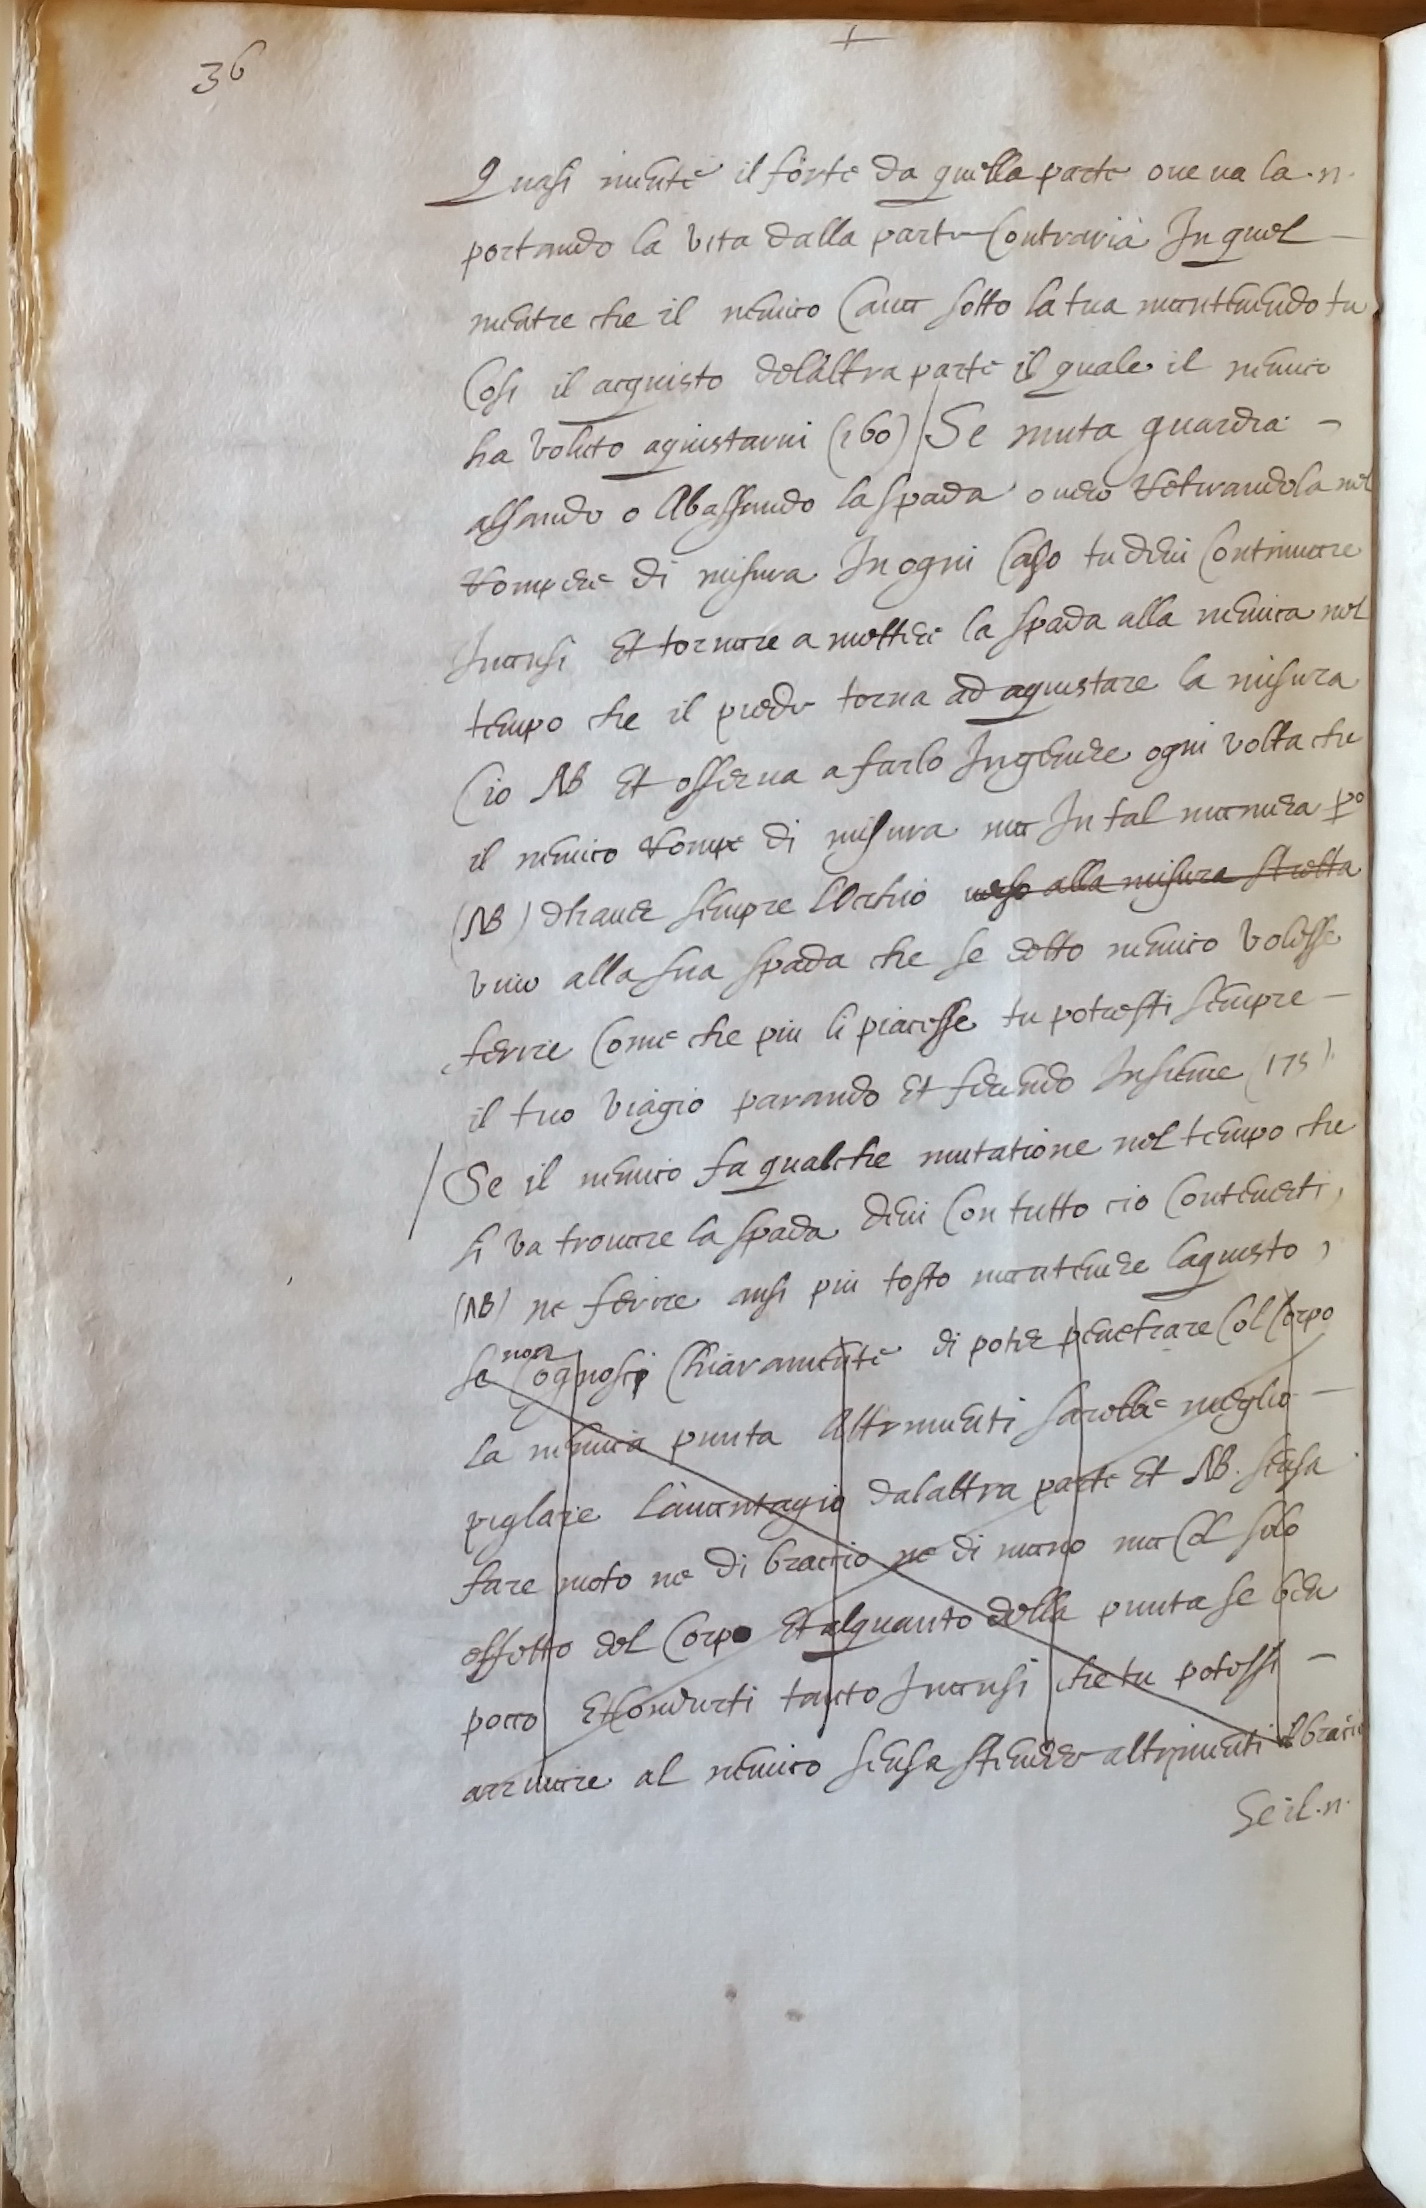 36
Quasi niente il forte da quella parte oue ua la .n.
portando la vita dalla parte Contraria In quel
mentre che il nemico Caua sotto la tua mantenendo tu
Cosi il acquisto delaltra parte il quale il nemico
ha voluto aquistarui (160) / Se muta guardia
alsando o Abassando la spada ouero Retirandola nel
Rompere di misura In ogni Caso tu deui Continuare
Inansi Et tornare a mettere la spada alla nemica nel
tempo che il piede torna ad aquistare la misura
Cio NB Et osserua a farlo Ingenere ogni volta che
il nemico Rompe di misura ma In tal maniera po
(NB) d'hauer sempre L'ochio verso alla misura stretta
viuo alla sua spada che se detto nemico volesse
ferire Come che piu li piacesse tu potresti sempre
il tuo viagio parando Et ferendo Insieme (175)
/ Se il nemico fa qualche mutatione nel tempo che
si va trouare la spada deui Con tutto cio Contenerti,
(NB) ne ferire ansi piu tosto mantenere laquisto,
se non Cognosci Chiaramente di poter penetrare Col Corpo
la nemica punta Altrimenti sarebbe meglio
piglare L'auantagio dalaltra parte Et NB. sensa
fare moto ne di braccio ne di mano ma Col solo
effetto del Corpo Et alquanto della punta se ben
poco Et Condurti tanto Inansi che tu potessi
arriuare al nemico sensa stendere altrimenti il bracio
Se il .n.